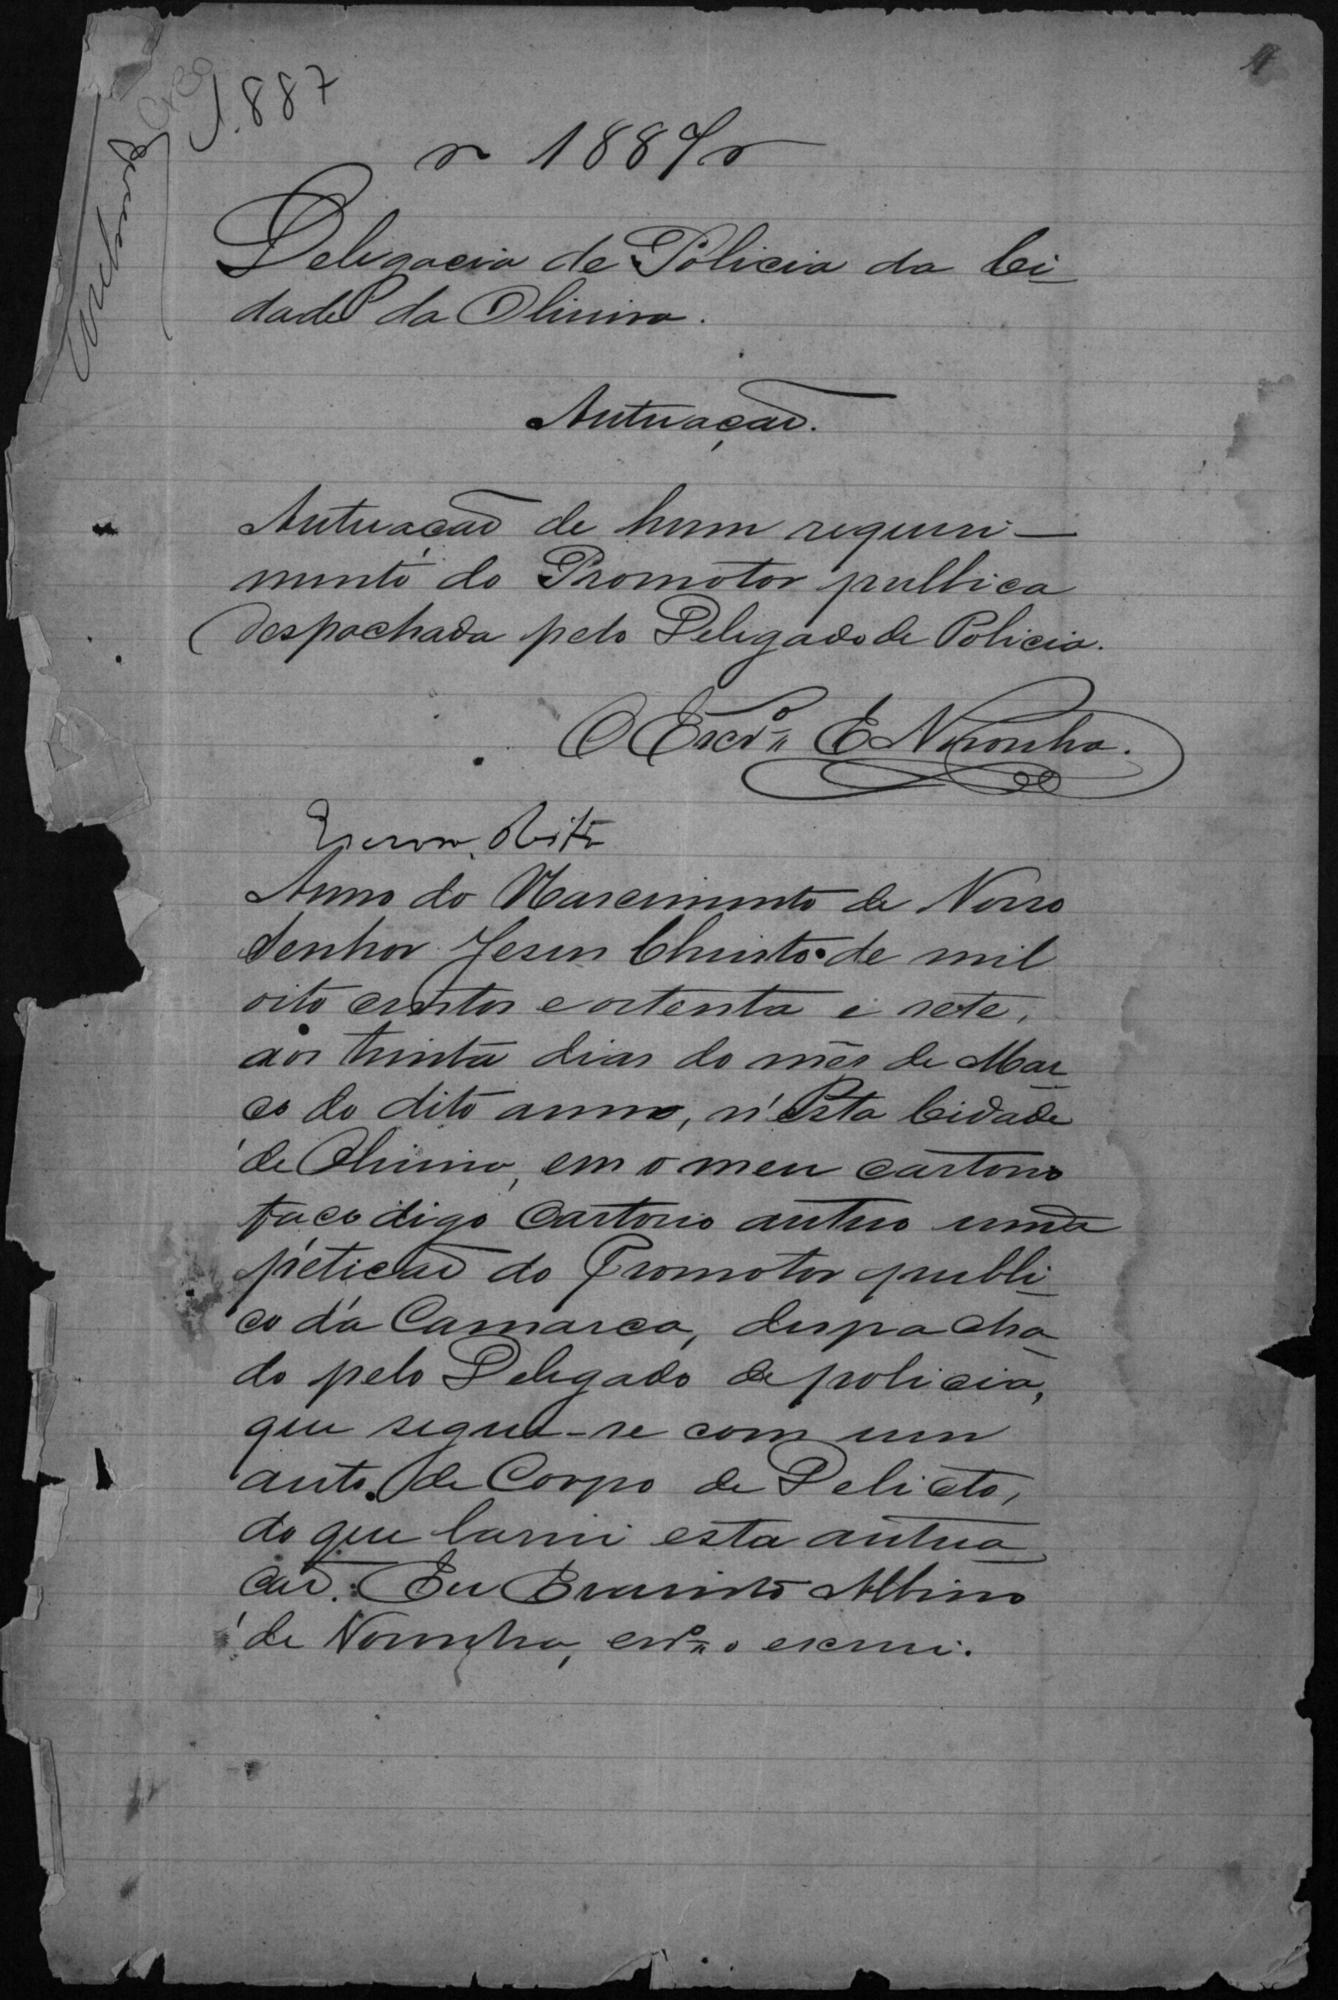 1.887
1887
Delegacia de Policia da Ci-
dade da Oliveira.
Autuação.
Autuação de hum requeri-
mento do Promotor publico
despachada pelo Delegado de Policia.
O Escr.º E Noronha.
Escrava Rita
Anno do Nascimento de Nosso
Senhor Jesus Christo de mil
oito centos e oitenta e sete,
aos trinta dias do mês de Mar
ço do dito anno, n'esta Cidade
de Oliveira, em o meu cartorio
faço digo Cartorio autuo uma
petição do Promotor publi-
co da Camarca, despacha
do pelo Delegado de policia,
que segue-se com um
auto de Corpo de Delicto,
do que lavrei esta autua
ção. Eu Evaristo Albino
de Noronha, escr.º o escrevi.